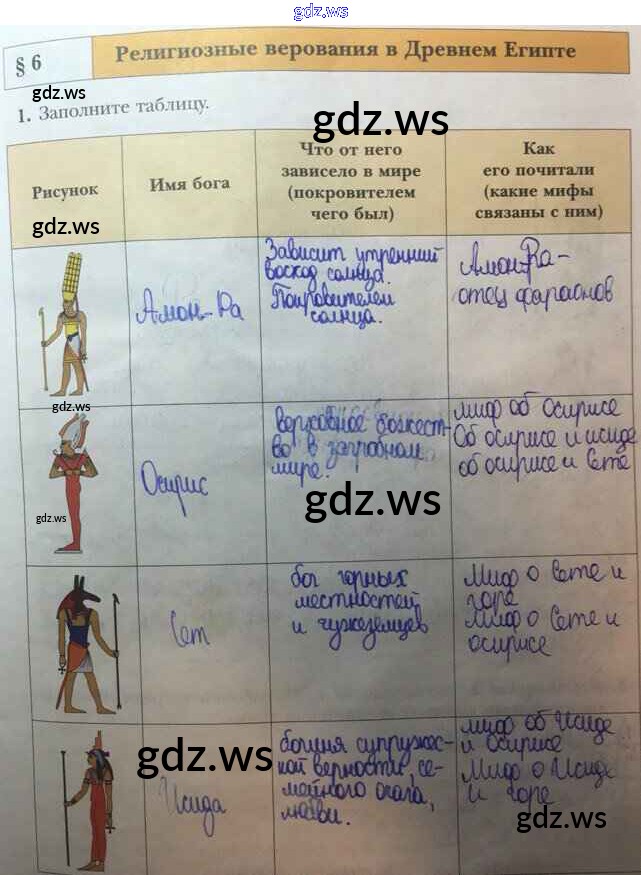 gdz.ws
§ 6
Религиозные верования в Древнем Египте
gdz.ws
1. Заполните таблицу.
gdz.ws
Рисунок
Имя бога
Что от него
зависело в мире
(покровителем
чего был)
Как
его почитали
(какие мифы
связаны с ним)
gdz.ws
Амон-Ра
Зависит утренний
восход солнца.
Покровителем
солнца.
Амон-Ра -
отец фараонов
gdz.ws
gdz.ws
Осирис
верховное божест-
во в загробном
мире.
gdz.ws
миф об осирисе
Об осирисе и исиде
об осирисе и Сете
Сет
бог горных
местностей
и чужеземцев
Миф о Сете и
горе
Миф о Сете и
осирисе
gdz.ws
Исида
богиня супружес-
кой верности, се-
мейного очага,
любви.
миф об Исиде
и Осирисе
Миф о Исиде
и горе
gdz.ws